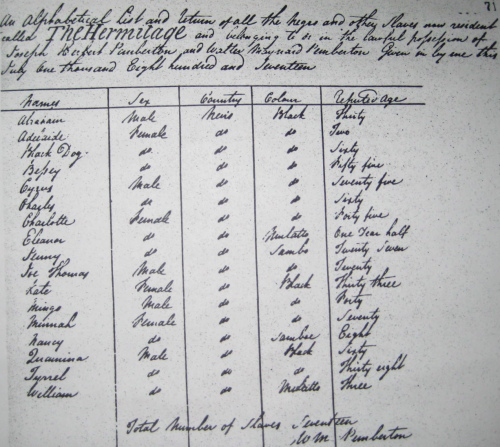 71
An Alphabetical List and Return of all the Negro and other Slaves now resident
called The Hermitage and belonging to or in the lawful possession of
Joseph Herbert Pemberton, and Walter Maynard Pemberton Given in by me this
July One thousand Eight hundred and Seventeen
Names Sex Country Colour Reputed Age
Abraham Male Nevis Black Thirty
Adelaide Female do do Two
Black Dog do do do Sixty
Bessey do do do Fifty five
Cyrus Male do do Seventy five
Charley do do do Sixty
Charlotte Female do do Forty five
Eleanor do do Mulatto One Year half
do do Sambo Twenty Seven
Joe Thomas Male do do Twenty
Kate Female do Black Thirty three
Mingo Male do do Forty
Minnah Female do do Seventy
Nancy do do Samboe Eight
Quamina Male do Black Sixty
Tyrrel do do do Thirty eight
William do do Mulatto Three
Total Number of Slaves Seventeen
W M Pemberton